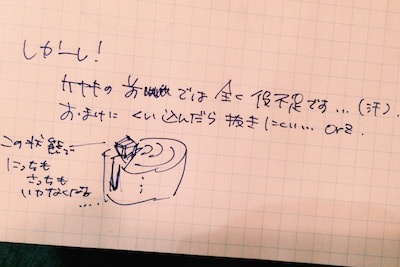 しかーし!
では全く役不足です…(汗).
おまけに くい込んだら 抜きにくい… orz.
この状態で
にっちも
さっちも
いかなくなる
.....